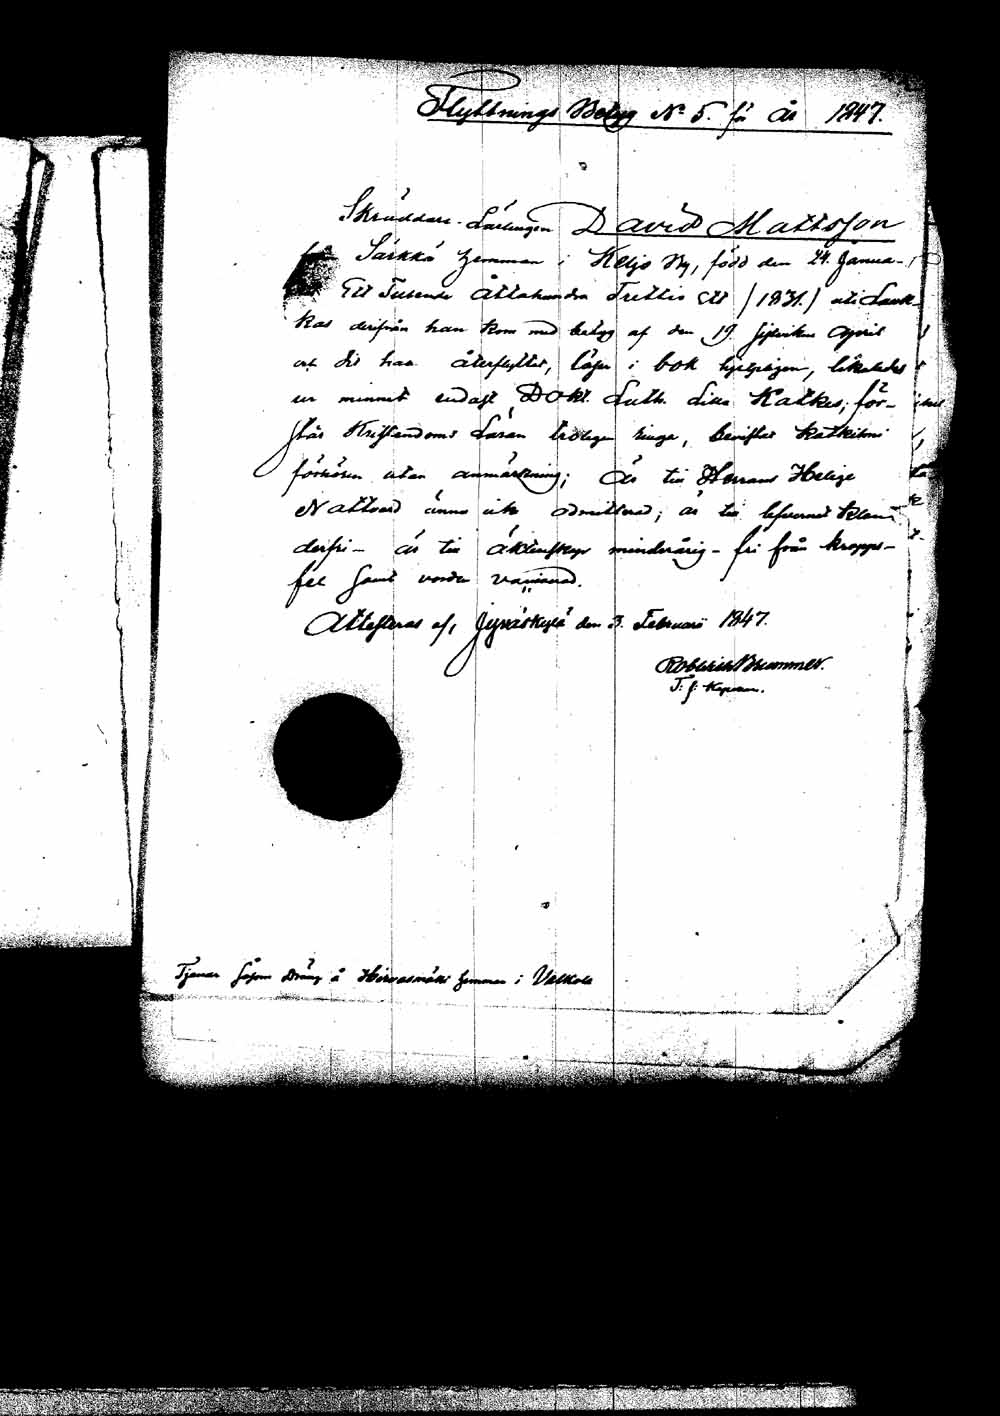 Flyttnings Betyg No 5. för år 1847.
Skräddare-Lärlingen David Mattsson
från Särkkä hemman i Keljo By, född den 24 Janua-
Ett Tusende Åttahundra Trettio Ett /1831./ uti Lauk-
kas derifrån han kom med betyg af den 19 sistvikne April
och dit han återflyttat, läser i bok hjelpligen, likaledes
ur minnet endast Dokt. Luth. Lilla Katkes, för-
står Kristendoms Läran tröligen ringa, bevistat Katkismi
förhören utan anmärkning; är till Herrans Helige
Nattvard ännu icke admitterad; är till lefvernet klan-
derfri - är till äktenskap minderårig - fri från kropps-
fel samt vorden vaccinerad.
Attesteras af, Jyväskylä den 3. Februarii 1847.
Brummer.
T: f: Kapellan.
Tjenar såsom Dräng å Hirvasmäki hemman i Valkola